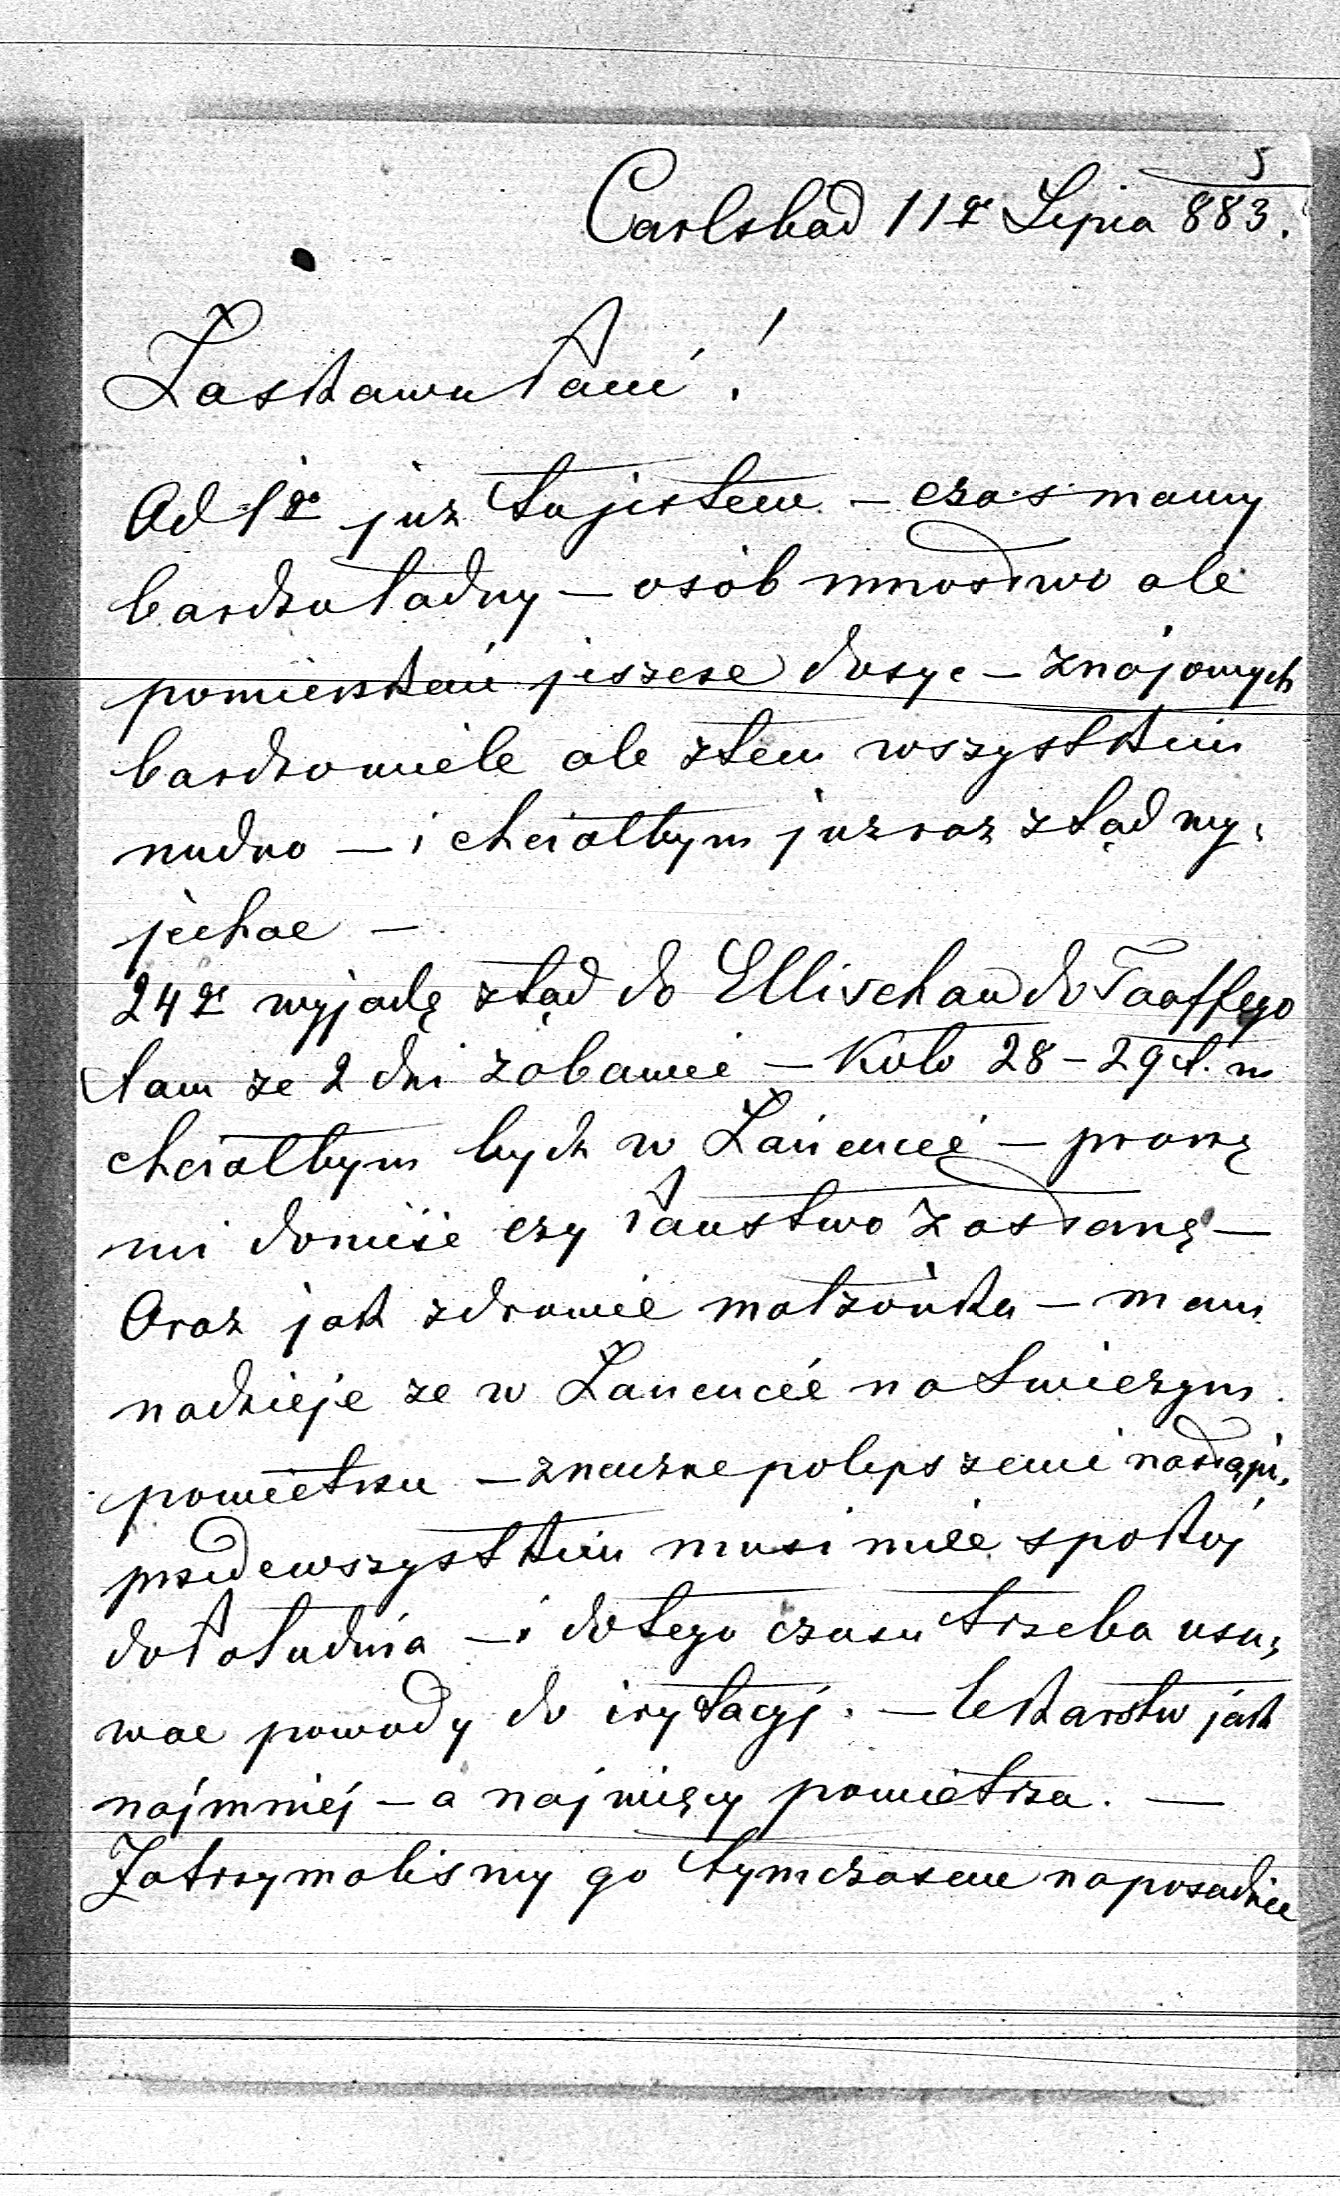 5
Carlsbad 11go Lipca 883.
Łaskawa Pani!
Od 1go juz tu jestem – czas mamy
bardzo ładny – osób mnostwo ale
pomieszkań jeszcze dosyc – znajomych
bardzo wiele ale z tem wszystkiem
nudno – i chciałbym juz raz ztąd wy-
jechac –
24go wyjadę ztąd do Ellischau do Taaffego
tam ze 2 dni zabawie – Koło 28 – 29 t. m
chciałbym bydz w Łańcucie – proszę
mi donieśc czy Państwo zastanę –
Oraz jak zdrowie małzonka – mam
nadzieje ze w Łancucie na swiezym
powietrzu – znaczne polepszenie nastąpi.
przedewszystkiem musi miec spokój
do Południa – i do tego czasu trzeba usu-
wac powody do irytacyj. – lekarstw jak
najmniej – a najwięcy powietrza. –
Zatrzymalismy go tymczasem na posadzie